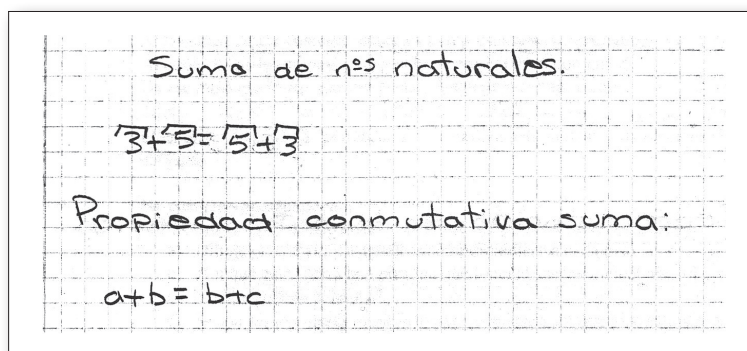 Suma de nºs naturales.
√3+√5=√5+√3
Propiedad conmutativa suma:
a+b=b+c